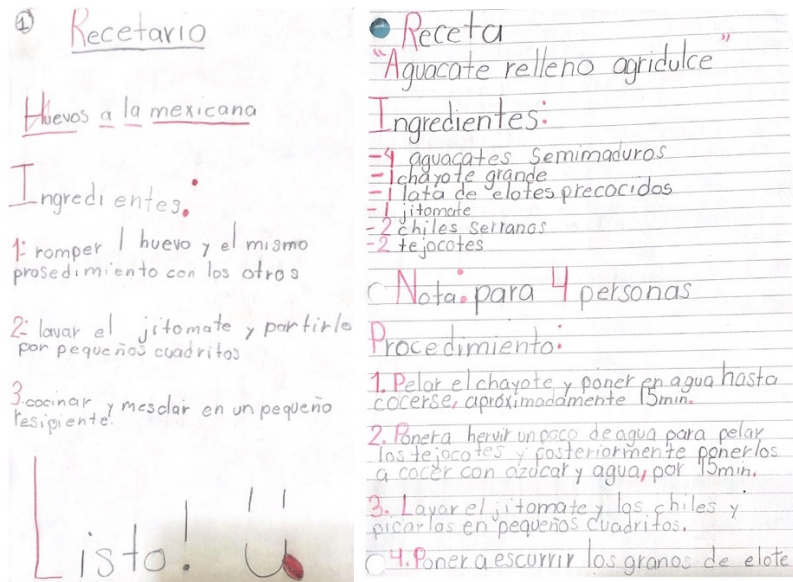 1
Recetario
Huevos a la mexicana
Ingredientes:
1: romper 1 huevo y el mismo
prosedimiento con los otros
2: lavar el jitomate y partirlo
por pequeños cuadritos
3. cocinar y mesclar en un pequeño
resipiente.
Listo! Ü
Receta
"Aguacate relleno agridulce"
Ingredientes:
-4 aguacates semimaduros
-1 chayote grande
-1 lata de elotes precocidos
-1 jitomate
-2 chiles serranos
-2 tejocotes
Nota: para 4 personas
Procedimiento:
1. Pelar el chayote y poner en agua hasta
cocerse, aproximadamente 15min.
2. Poner a hervir un poco de agua para pelar
los tejocotes y posteriormente ponerlos
a cocer con azúcar y agua, por 15min.
3. Lavar el jitomate y los chiles y
picarlos en pequeños cuadritos.
4. Poner a escurrir los granos de elote